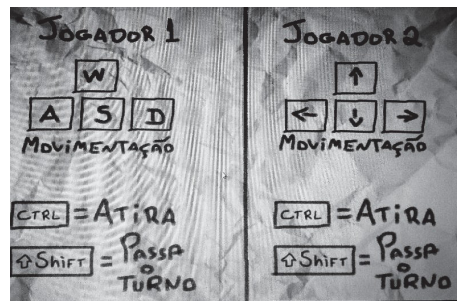 JOGADOR 1
W
A S D
MOVIMENTAÇÃO
CTRL = ATIRA
⇧ Shift = PASSA
O
TURNO
JOGADOR 2
↑
← ↓ →
MOVIMENTAÇÃO
CTRL = ATIRA
⇧ Shift = PASSA
O
TURNO